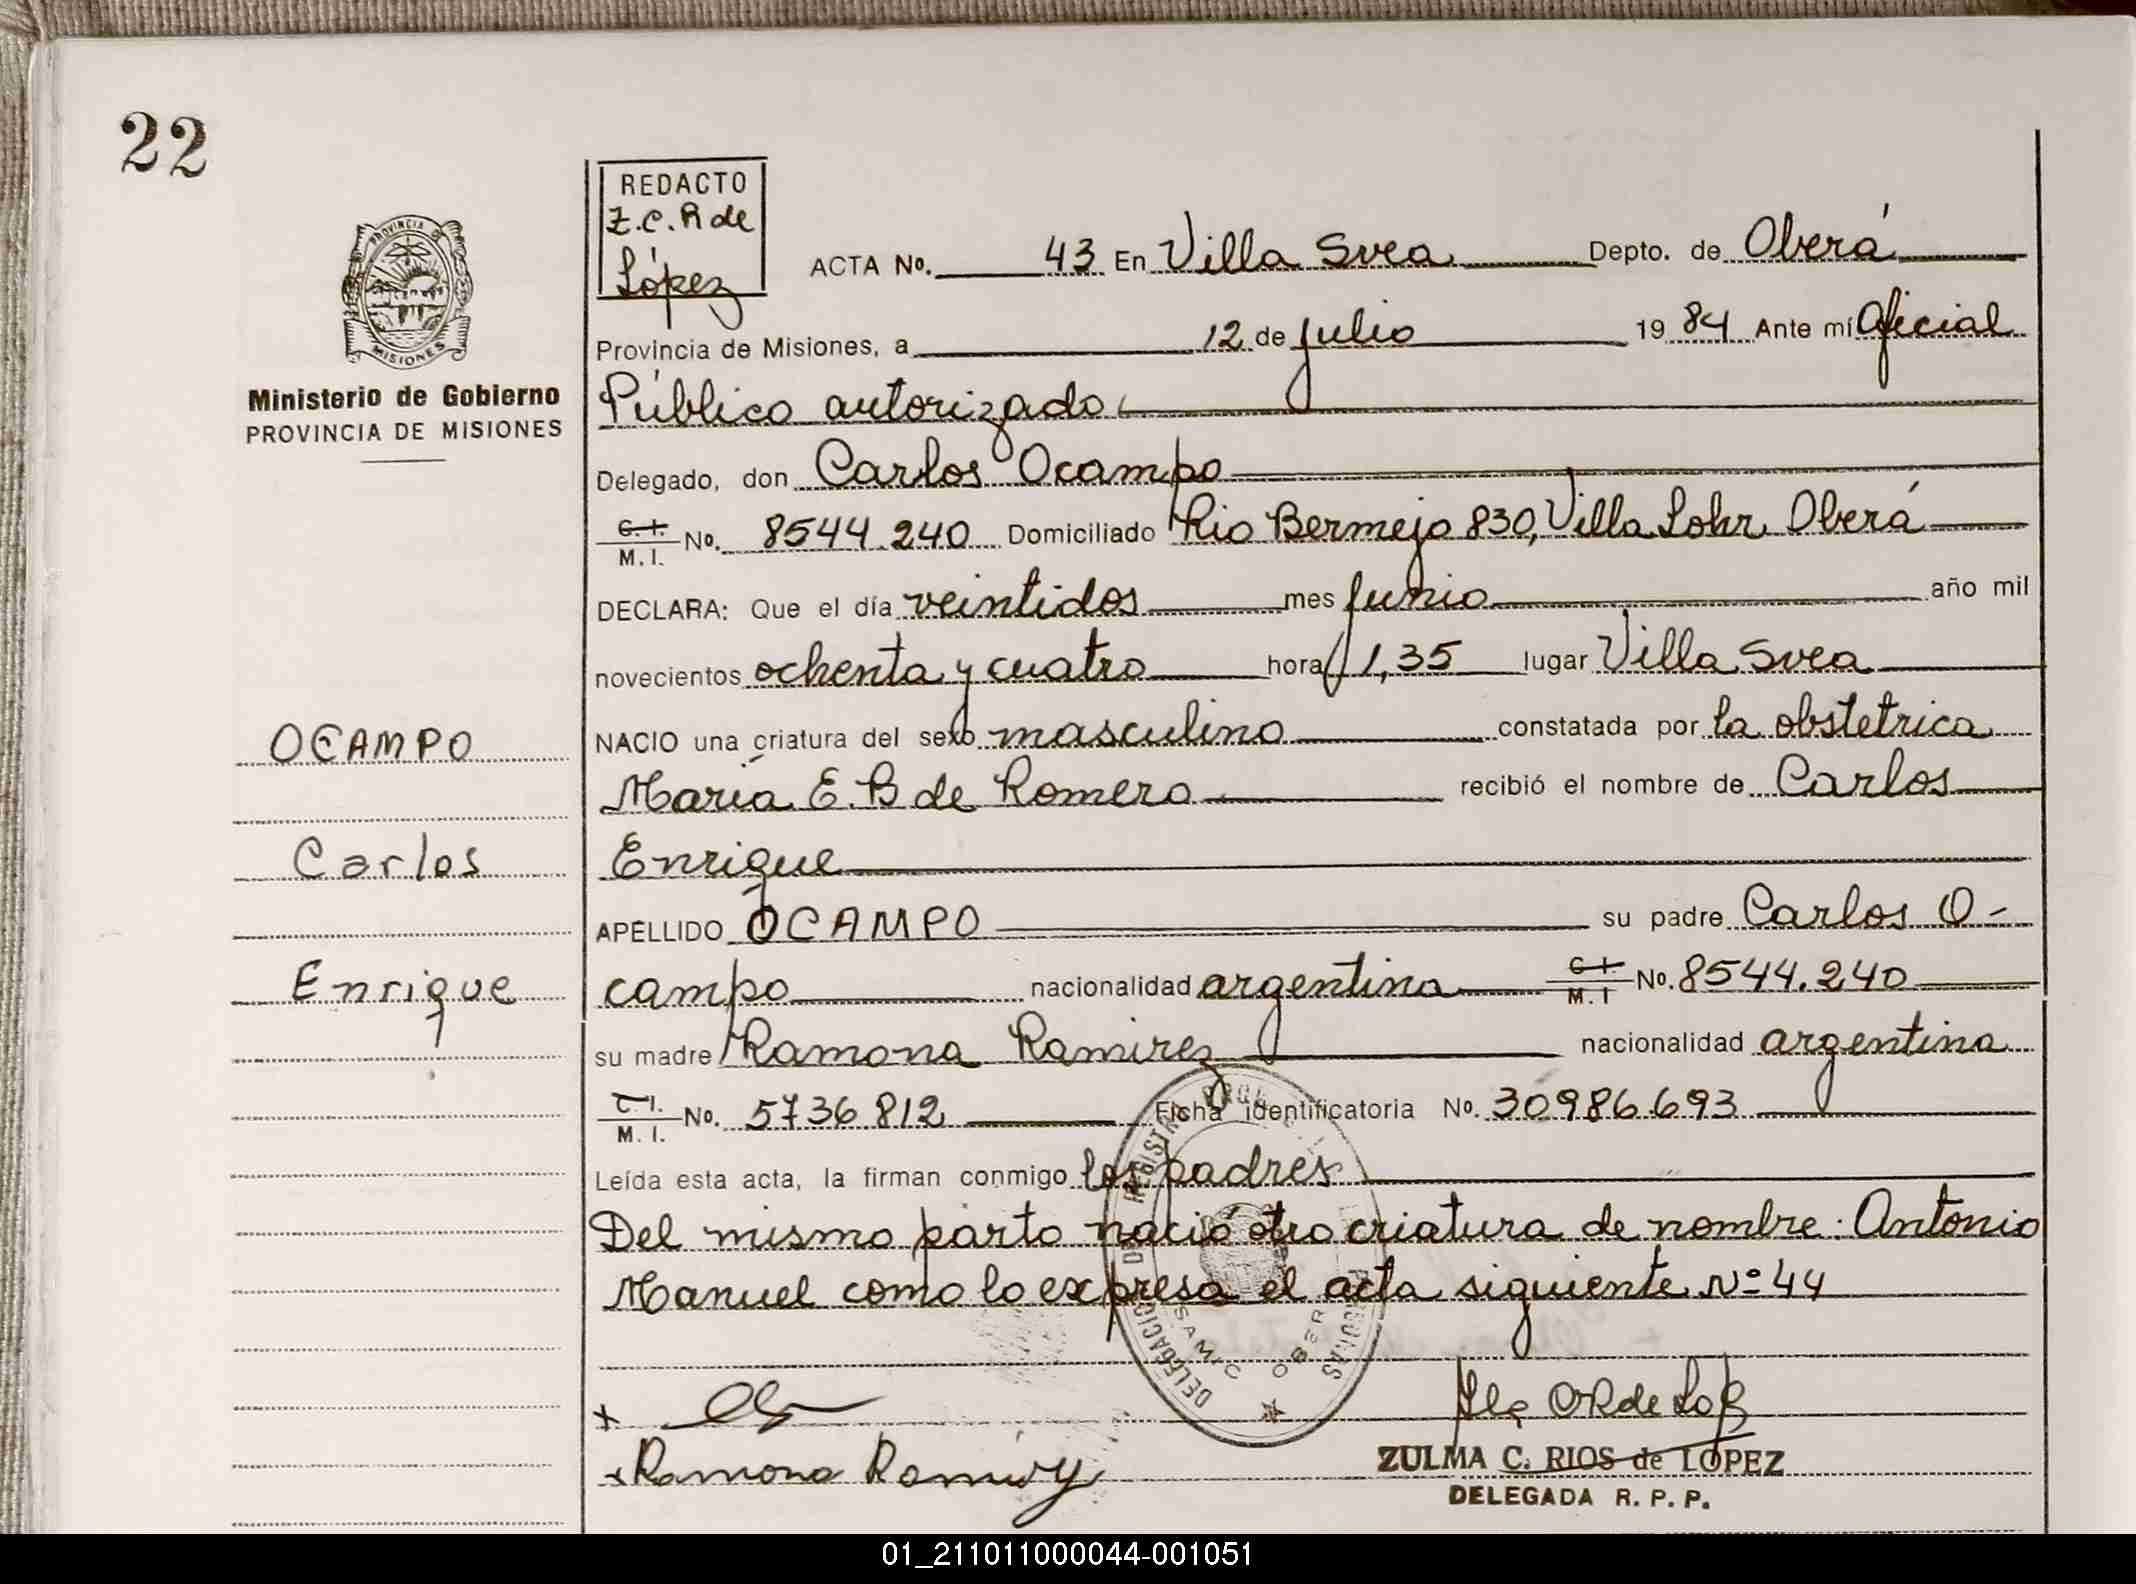 22
REDACTO
Z.C.R de
López
PROVINCIA DE
MISIONES
Ministerio de Gobierno
PROVINCIA DE MISIONES
ACTA No. 43 En Villa Svea Depto. de Oberá
Provincia de Misiones, a 12 de julio 19 84 Ante mí Oficial
Público autorizado
Delegado, don Carlos Ocampo
C.I. M.I. No. 8544.240 Domiciliado Rio Bermejo 830, Villa Lohr Oberá
DECLARA: Que el día veintidos mes junio año mil
novecientos ochenta y cuatro hora 1,35 lugar Villa Svea
OCAMPO
NACIO una criatura del sexo masculino constatada por la obstetrica
María E. B de Romero recibió el nombre de Carlos
Carlos
Enrique
APELLIDO OCAMPO su padre Carlos O-
Enrique
campo nacionalidad argentina C.I. M.I No. 8544.240
su madre Ramona Ramirez nacionalidad argentina
C.I. M.I. No. 5736812 Ficha identificatoria No. 30986.693
Leída esta acta, la firman conmigo los padres
Del mismo parto nació otro criatura de nombre: Antonio
Manuel como lo expresa el acta siguiente Nº 44
Ramona
ZULMA C. RIOS de LOPEZ
DELEGADA R. P. P.
01_211011000044-001051